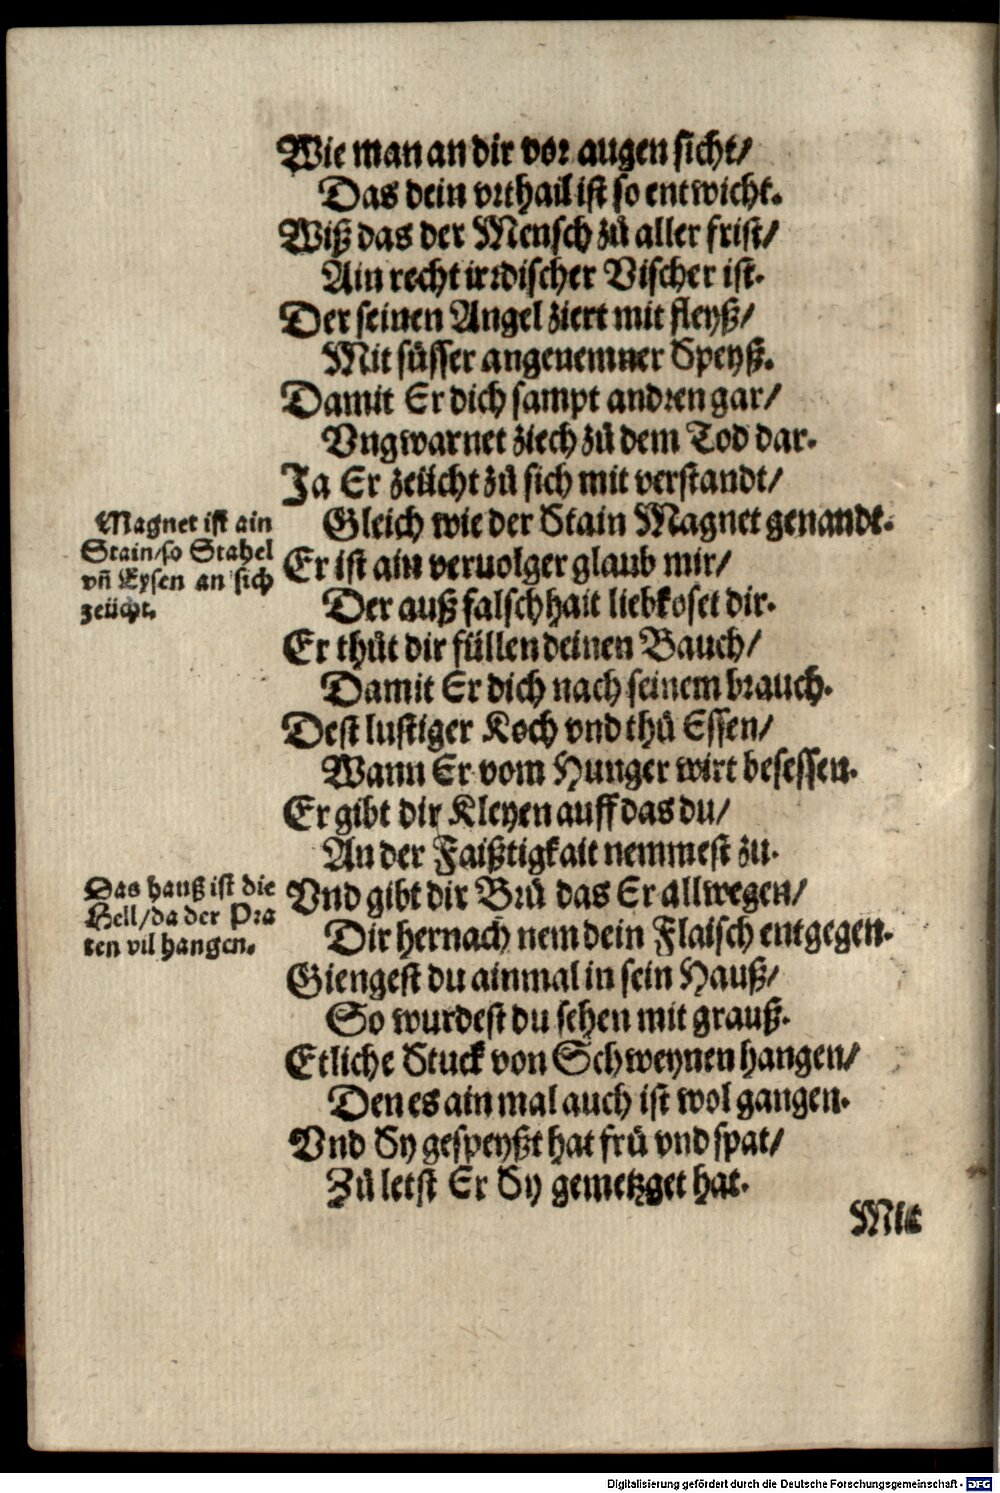 Wie man an dir vor augen sicht/
Das dein vrthail ist so entwicht.
Wiß das der Mensch zů aller frist/
Ain recht irrdischer Vischer ist.
Der seinen Angel ziert mit fleyß/
Mit süsser angenemner Speyß.
Damit Er dich sampt andren gar/
Vngwarnet ziech zů dem Tod dar.
Ja Er zeücht zů sich mit verstandt/
Gleich wie der Stain Magnet genandt.
Magnet ist ain
Stain/so Stahel
vñ Eysen an sich
zeücht.
Er ist ain veruolger glaub mir/
Der auß falschhait liebkoset dir.
Er thůt dir füllen deinen Bauch/
Damit Er dich nach seinem brauch.
Dest lustiger Koch vnd thů Essen/
Wann Er vom Hunger wirt besessen.
Er gibt dir Kleyen auff das du/
An der Faißtigkait nemmest zu.
Vnd gibt dir Brü das Er allwegen/
Dir hernach nem dein Flaisch entgegen.
Das hauß ist die
Hell/da der Pra
ten vil hangen.
Giengest du ainmal in sein Hauß/
So wurdest du sehen mit grauß.
Etliche Stuck von Schweynen hangen/
Den es ain mal auch ist wol gangen.
Vnd Sy gespeyßt hat frü vnd spat/
Zů letst Er Sy gemetzget hat.
Mit
Digitalisierung gefördert durch die Deutsche Forschungsgemeinschaft - DFG